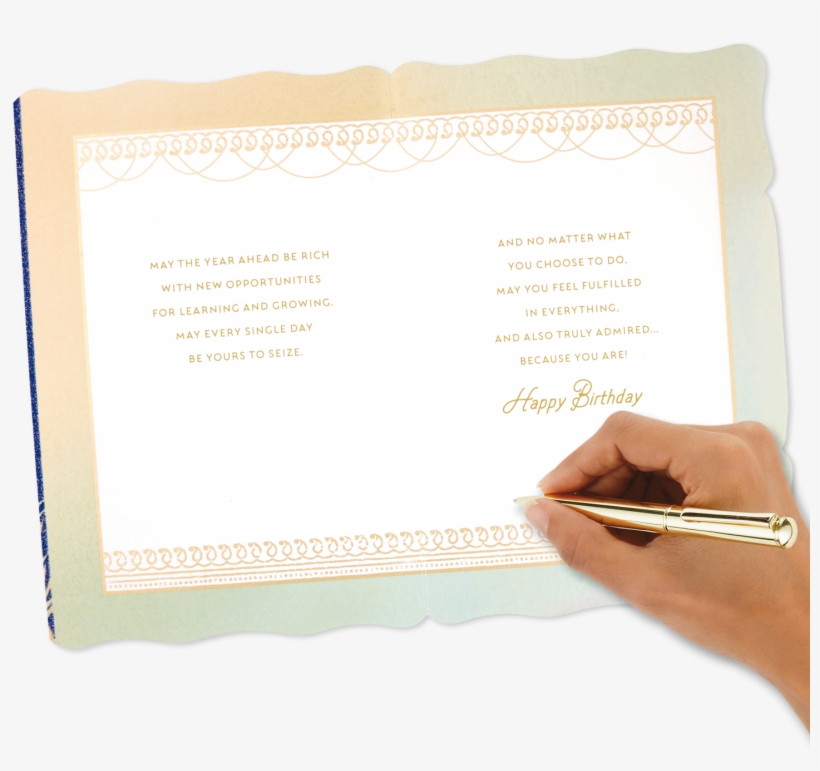 MAY THE YEAR AHEAD BE RICH
WITH NEW OPPORTUNITIES
FOR LEARNING AND GROWING.
MAY EVERY SINGLE DAY
BE YOURS TO SEIZE.
AND NO MATTER WHAT
YOU CHOOSE TO DO,
MAY YOU FEEL FULFILLED
IN EVERYTHING,
AND ALSO TRULY ADMIRED...
BECAUSE YOU ARE!
Happy Birthday